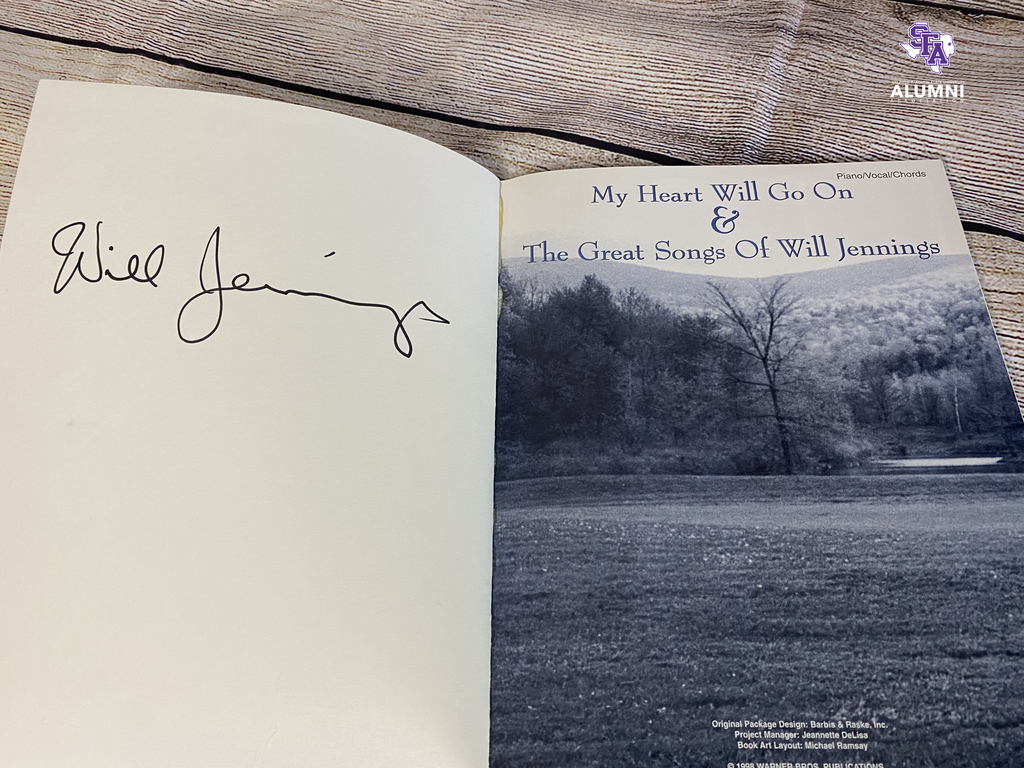 SFA
ALUMNI
Will Jennings
Piano/Vocal/Chords
My Heart Will Go On
&
The Great Songs Of Will Jennings
Original Package Design: Barbis & Raske, Inc.
Project Manager: Jeannette DeLisa
Book Art Layout: Michael Ramsay
© 1998 WARNER BROS. PUBLICATIONS